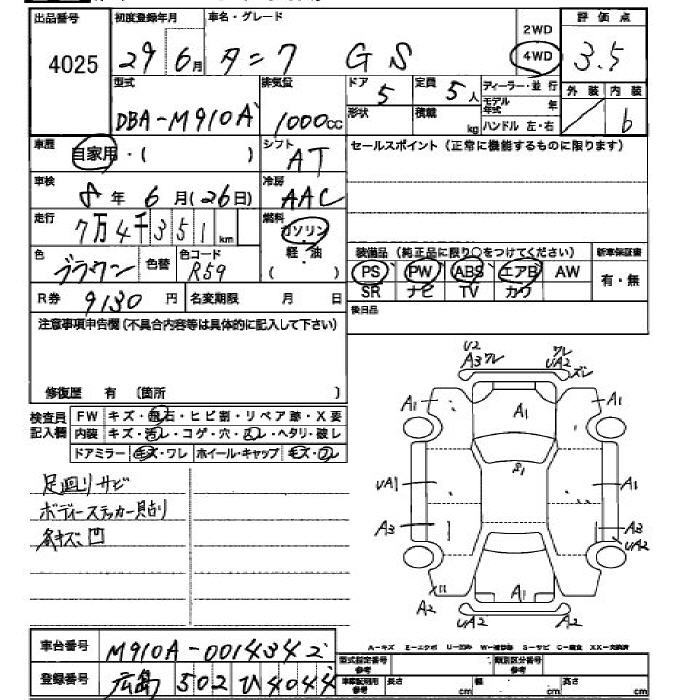 出品番号 初度登録年月 車名・グレード 2WD 評価点
4025 29 6月 タンク GS 4WD 3.5
型式 排気量 ドア 定員 ディーラー・並行 外装 内装
DBA-M910A 1000cc 5 5人 モデル年式 年 b
形状 積載 kg ハンドル 左・右
車歴 自家用・( ) シフト AT セールスポイント(正常に機能するものに限ります)
車検 8年6月(26日) 冷房 AAC
走行 7万4千351km 燃料 ガソリン・軽・油( )
色 ブラウン 色替 色コード R59
装備品(純正品に限り○をつけてください) 新車保証書
PS PW ABS エアB AW 有・無
SR ナビ TV カワ
R券 9130円 名変期限 月 日 後日品
注意事項申告欄(不具合内容等は具体的に記入して下さい)
修復歴 有 〔箇所 〕
検査員記入欄 FW キズ・飛石・ヒビ割・リペア跡・X要
内装 キズ・汚レ・コゲ・穴・凹レ・ヘタリ・破レ
ドアミラー キズ・ワレ ホイール・キャップ キズ・凹
足廻りサビ
ボディーステッカー貼り
各キズ凹
U2 A3ワレ ワレ UA2 ズレ
A1 A1 A1
S1
UA1 A1
A3 A3 UA2
A2 A1 UA2 A2
A-キズ E-エクボ U-凹み W-補修跡 S-サビ C-腐食 XX-交換済
車台番号 M910A-0014342 型式指定番号参考 類別区分番号参考
登録番号 広島 502 ひ 4044 車庫証明用参考 長さ cm 幅 cm 高さ cm